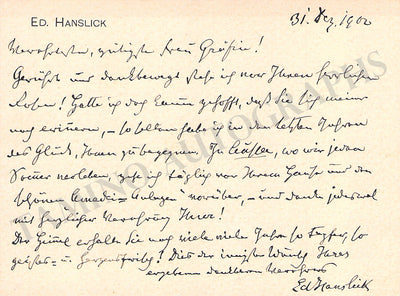 ED. HANSLICK
31. Dez. 1900
Verehrteste, gütigste Frau Gräfin!
Gerührt und dankbewegt stehe ich vor Ihren herrlichen
Rosen! Hatte ich doch kaum gehofft, daß Sie sich meiner
noch erinnern, – so selten habe ich in den letzten Jahren
das Glück, Ihnen zu begegnen. In wo wir jeden
Sommer verleben, gehe ich täglich vor Ihrem Hause und den
schönen Anlagen vorüber, – und denke jedesmal
mit herzlicher Verehrung Ihrer!
Der Himmel erhalte Sie noch viele viele Jahre so tapfer, so
geistes- u. herzensfrisch! Dies der innigste Wunsch Ihres
ergebenen dankbaren Verehrers
Ed Hanslick
TAMINO AUTOGRAPHS